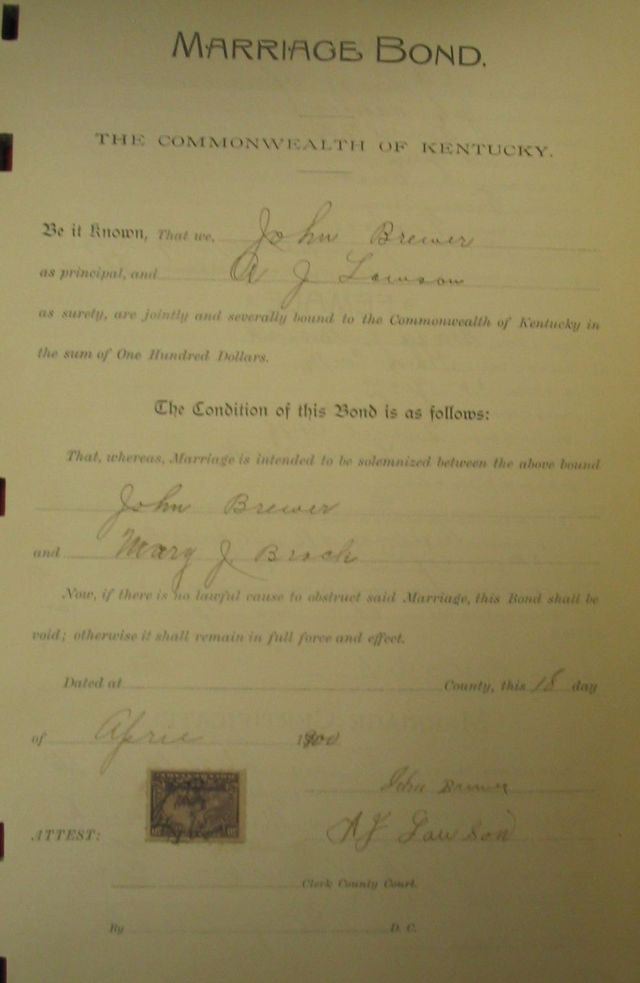 MARRIAGE BOND.
THE COMMONWEALTH OF KENTUCKY.
Be it Known, That we, John Brewer
as principal, and A J Lawson
as surety, are jointly and severally bound to the Commonwealth of Kentucky in
the sum of One Hundred Dollars.
The Condition of this Bond is as follows:
That, whereas, Marriage is intended to be solemnized between the above bound
John Brewer
and Mary J Brock
Now, if there is no lawful cause to obstruct said Marriage, this Bond shall be
void; otherwise it shall remain in full force and effect.
Dated at County, this 18 day
of April 1900
John Brewer
ATTEST: A J Lawson
Clerk County Court.
By D. C.